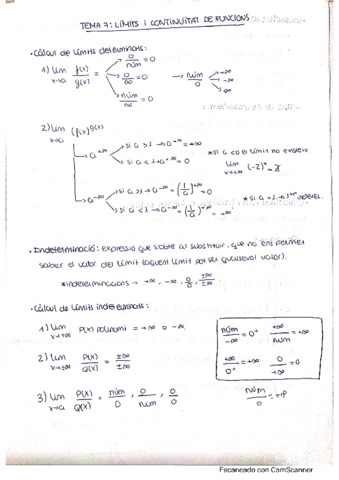 TEMA 7: LÍMITS I CONTINUÏTAT DE FUNCIONS
• Càlcul de límits determinats:
1) lim x→a f(x)/g(x) = → 0/núm = 0
→ 0/∞ = 0
→ núm/∞ = 0
→ núm/0 → +∞ → -∞ → ∞
2) lim x→a (f(x))^g(x)
→ a^+∞ → si a > 1 → a^+∞ = +∞
→ si a < 1 → a^+∞ = 0
*si a < 0 el límit no existeix
lim x→+∞ (-2)^x = ∄
→ a^-∞ → si a > 1 → a^-∞ = (1/a)^+∞ = 0
→ si a < 1 → a^-∞ = (1/a)^+∞ = +∞
* si a = 1 → 1^±∞ indeter.
• Indeterminació: expressió que s'obté al substituir, que no ens permet
saber el valor del límit (aquest límit pot ser qualsevol valor).
*indeterminacions → +∞, -∞, 0/0, ±∞/±∞
• Càlcul de límits indeterminats:
1) lim x→±∞ P(x) polinomi = +∞ o -∞.
2) lim x→±∞ P(x)/Q(x) = ±∞/±∞
3) lim x→a P(x)/Q(x) = núm/0, 0/núm, 0/0
núm/-∞ = 0⁻ +∞/núm = +∞
+∞/0⁺ = +∞ 0/+∞ = 0
núm/0 =
Escaneado con CamScanner